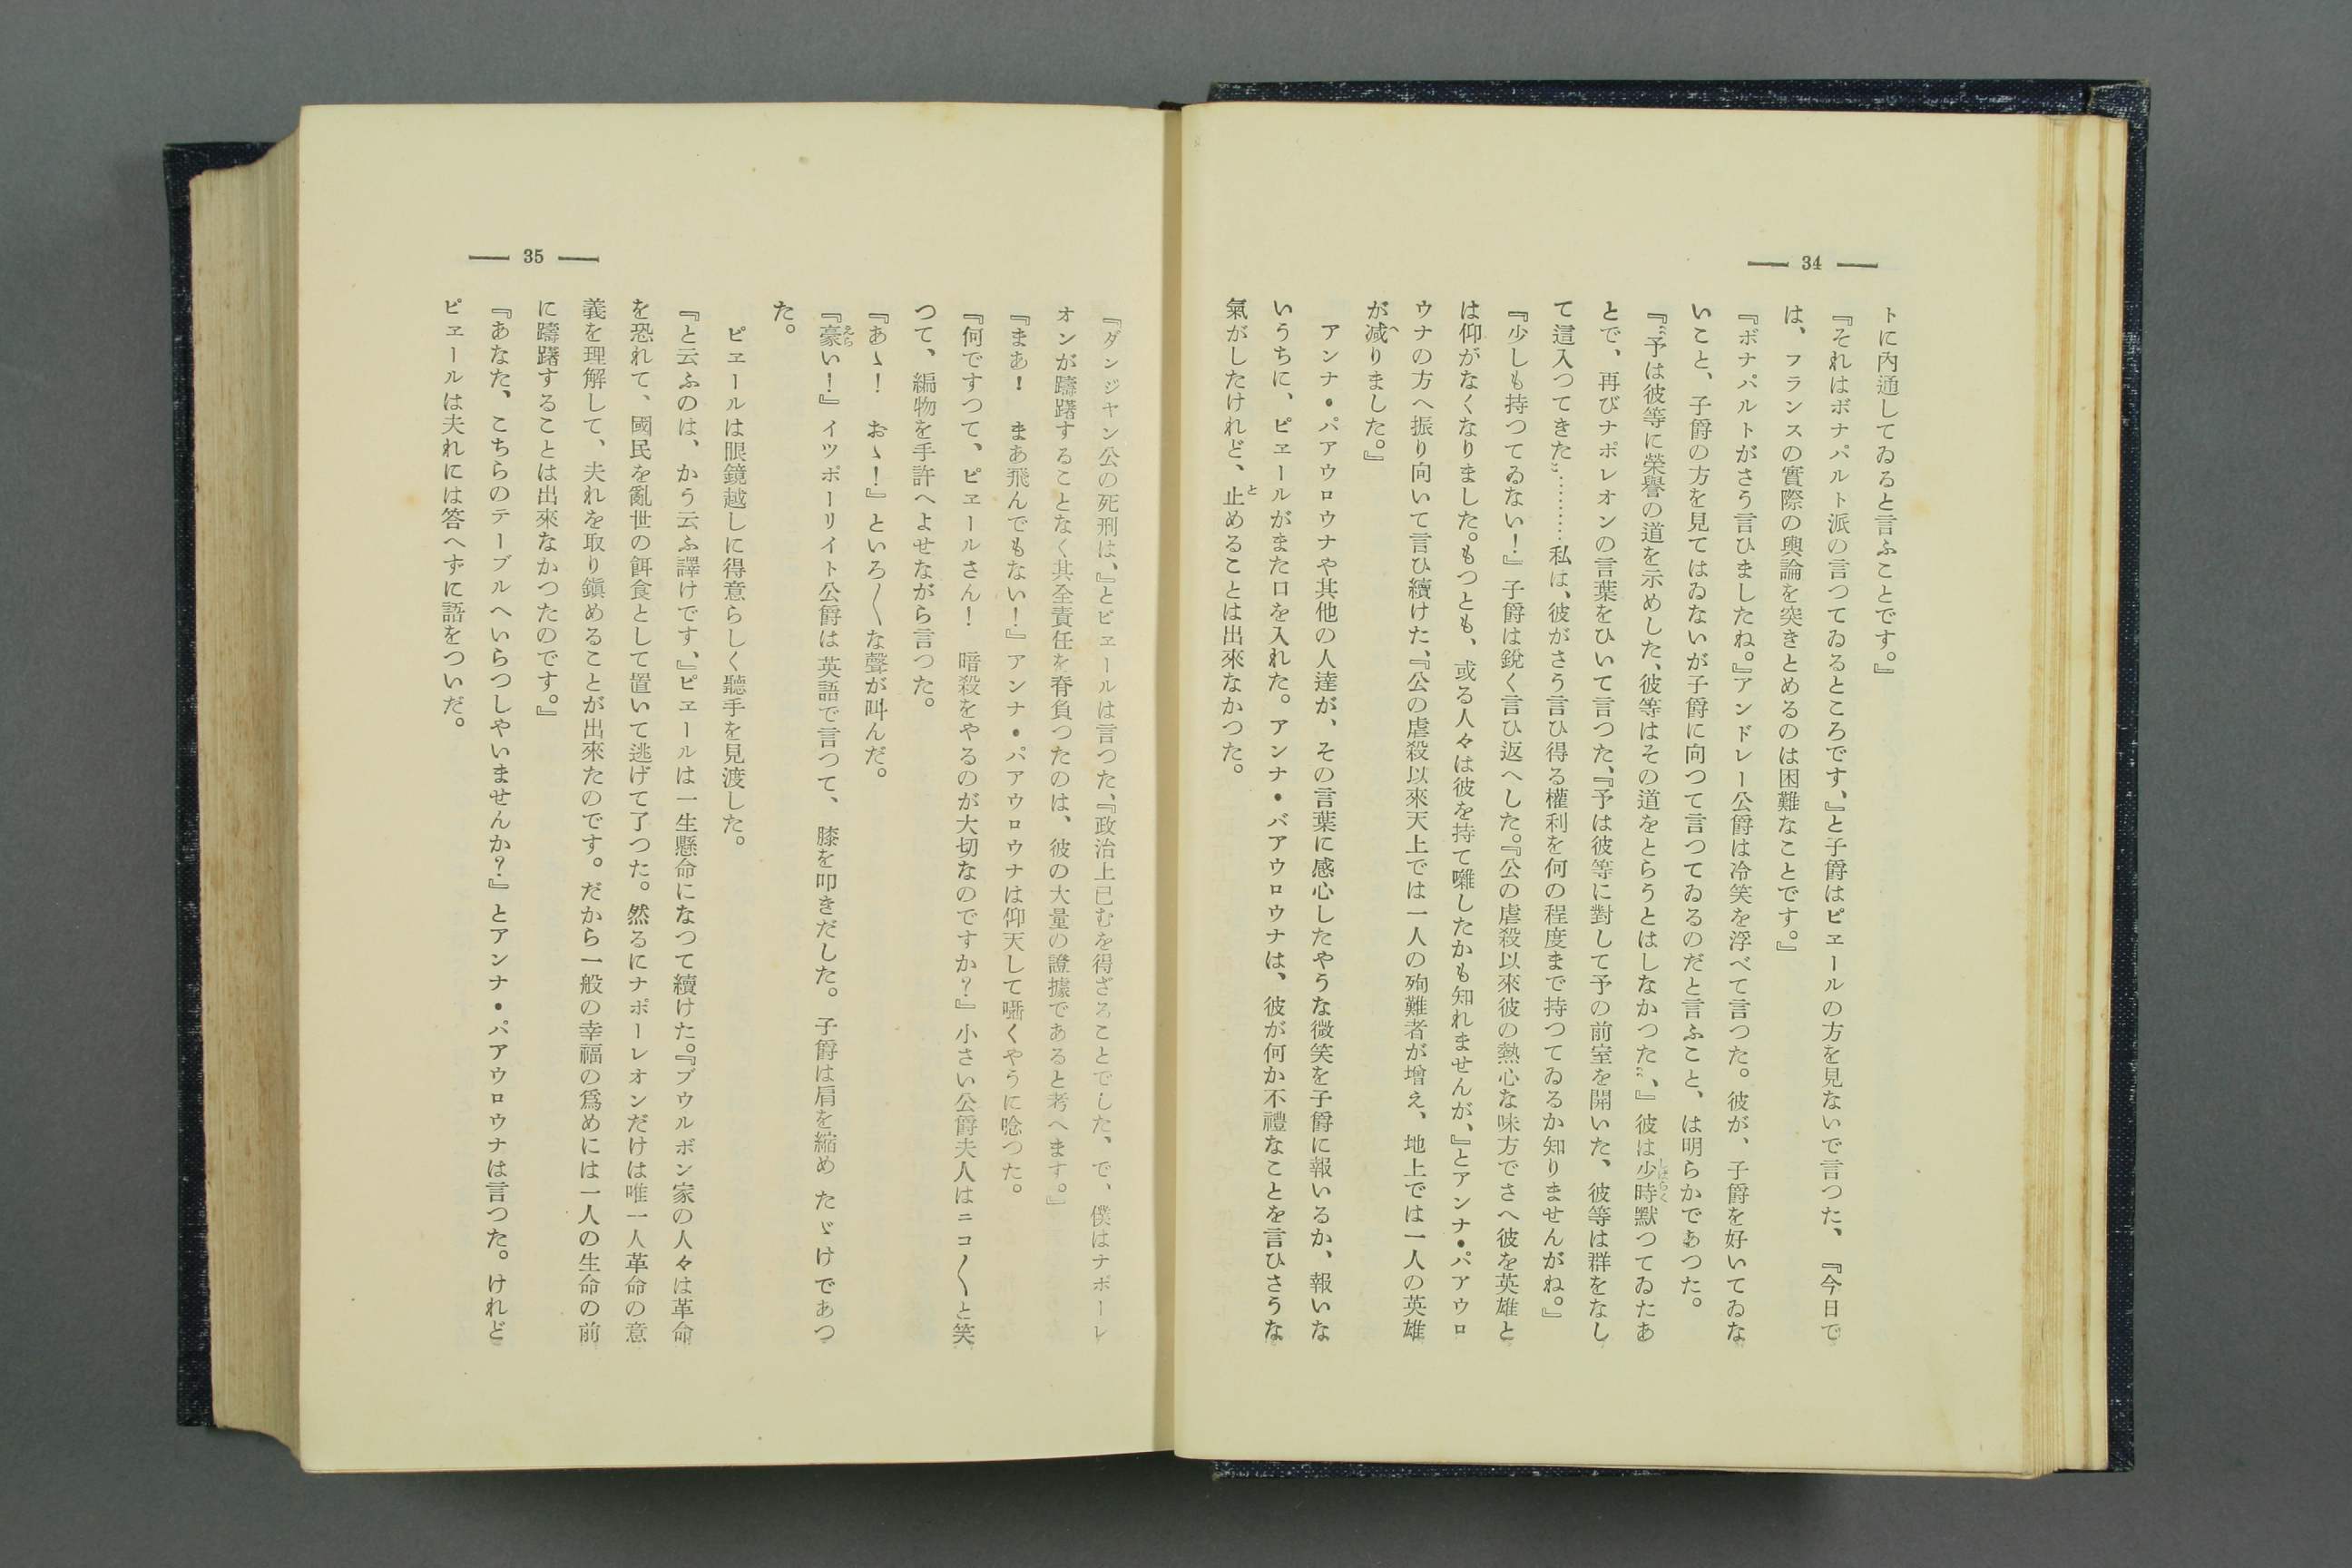 34
トに內通してゐると言ふことです。』
『それはボナパルト派の言つてゐるところです、』と子爵はピエールの方を見ないで言つた、『今日で
は、フランスの實際の輿論を突きとめるのは困難なことです。』
『ボナパルトがさう言ひましたね。』アンドレー公爵は冷笑を浮べて言つた。彼が、子爵を好いてゐな
いこと、子爵の方を見てはゐないが子爵に向つて言つてゐるのだと言ふこと、は明らかであつた。
『〝予は彼等に榮譽の道を示めした、彼等はその道をとらうとはしなかつた〟、』彼は少時默つてゐたあ
とで、再びナポレオンの言葉をひいて言つた、『〝予は彼等に對して予の前室を開いた、彼等は群をなし
て這入つてきた〟………私は、彼がさう言ひ得る權利を何の程度まで持つてゐるか知りませんがね。』
『少しも持つてゐない！』子爵は銳く言ひ返へした。『公の虐殺以來彼の熱心な味方でさへ彼を英雄と
は仰がなくなりました。もつとも、或る人々は彼を持て囃したかも知れませんが、』とアンナ・パアウロ
ウナの方へ振り向いて言ひ續けた、『公の虐殺以來天上では一人の殉難者が增え、地上では一人の英雄
が減りました。』
アンナ・パアウロウナや其他の人達が、その言葉に感心したやうな微笑を子爵に報いるか、報いな
いうちに、ピエールがまた口を入れた。アンナ・パアウロウナは、彼が何か不禮なことを言ひさうな
氣がしたけれど、止めることは出來なかつた。
35
『ダンジヤン公の死刑は、』とピエールは言つた、『政治上已むを得ざることでした、で、僕はナポーレ
オンが躊躇することなく其全責任を脊負つたのは、彼の大量の證據であると考へます。』
『まあ！　まあ飛んでもない！』アンナ・パアウロウナは仰天して囁くやうに唸つた。
『何ですつて、ピエールさん！　暗殺をやるのが大切なのですか？』小さい公爵夫人はニコ〱と笑
つて、編物を手許へよせながら言つた。
『あゝ！　おゝ！』といろ〱な聲が叫んだ。
『豪い！』イツポーリイト公爵は英語で言つて、膝を叩きだした。子爵は肩を縮めたゞけであつ
た。
ピエールは眼鏡越しに得意らしく聽手を見渡した。
『と云ふのは、かう云ふ譯けです、』ピエールは一生懸命になつて續けた。『ブウルボン家の人々は革命
を恐れて、國民を亂世の餌食として置いて逃げて了つた。然るにナポーレオンだけは唯一人革命の意
義を理解して、夫れを取り鎭めることが出來たのです。だから一般の幸福の爲めには一人の生命の前
に躊躇することは出來なかつたのです。』
『あなた、こちらのテーブルへいらつしやいませんか？』とアンナ・パアウロウナは言つた。けれど
ピエールは夫れには答へずに語をついだ。